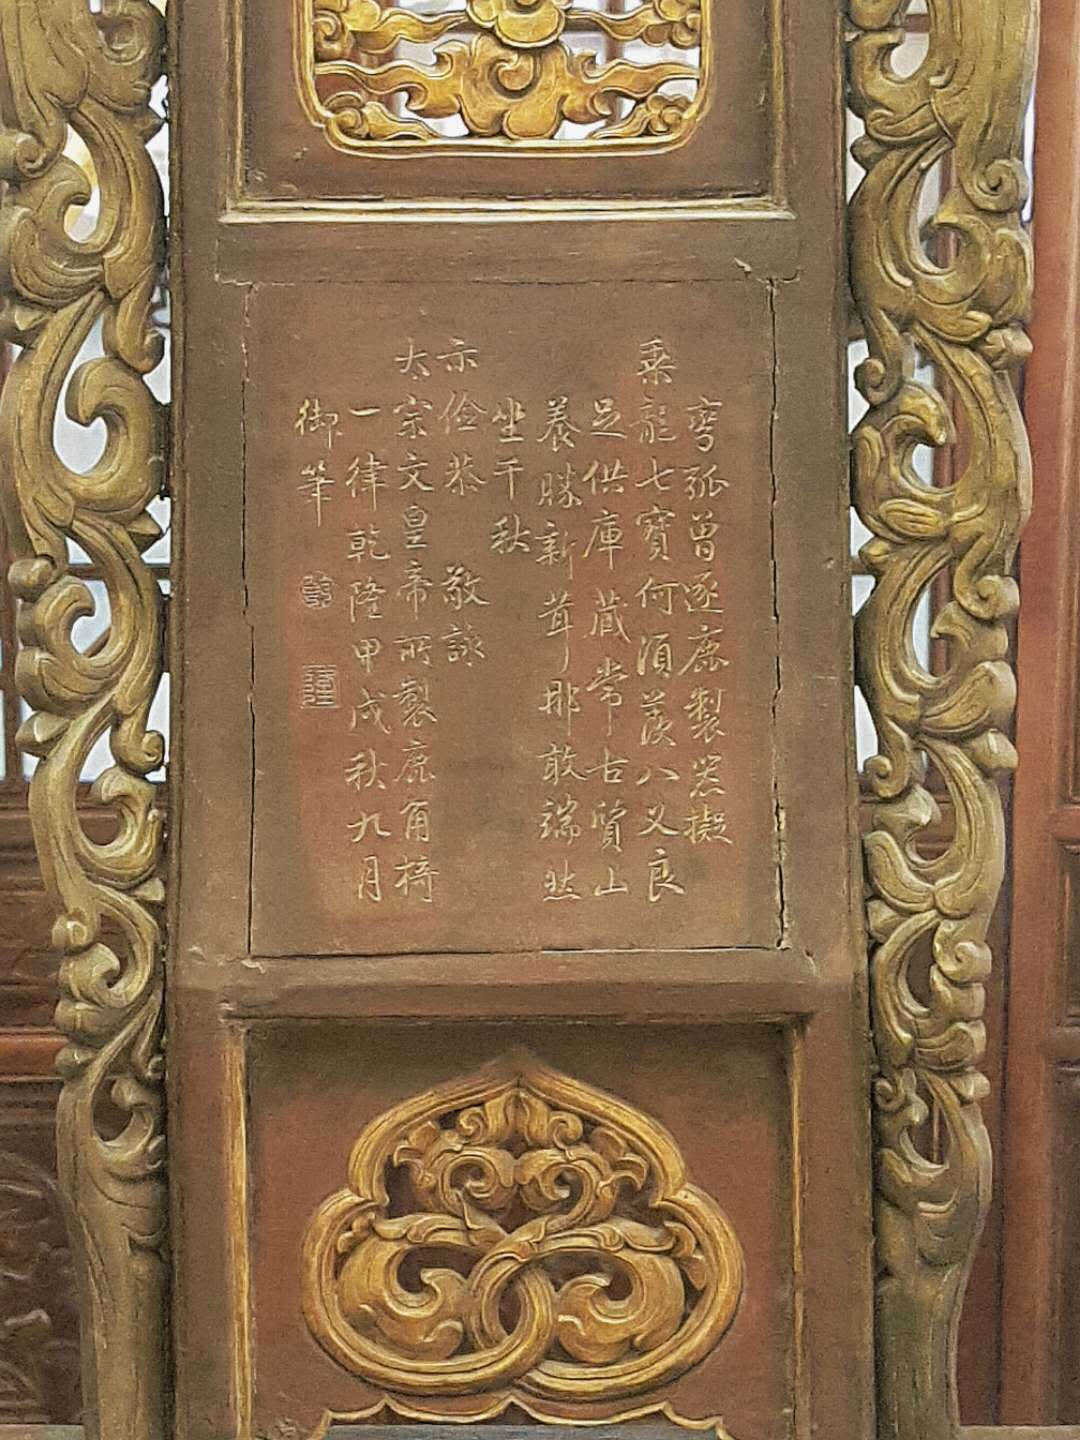 彎弧曾逐鹿製器擬
乘龍七寶何須羨八叉良
足供庫藏常古質山
養勝新茸那敢端然
坐千秋
示儉恭 敬詠
太宗文皇帝所製鹿角椅
一律乾隆甲戌秋九月
御筆